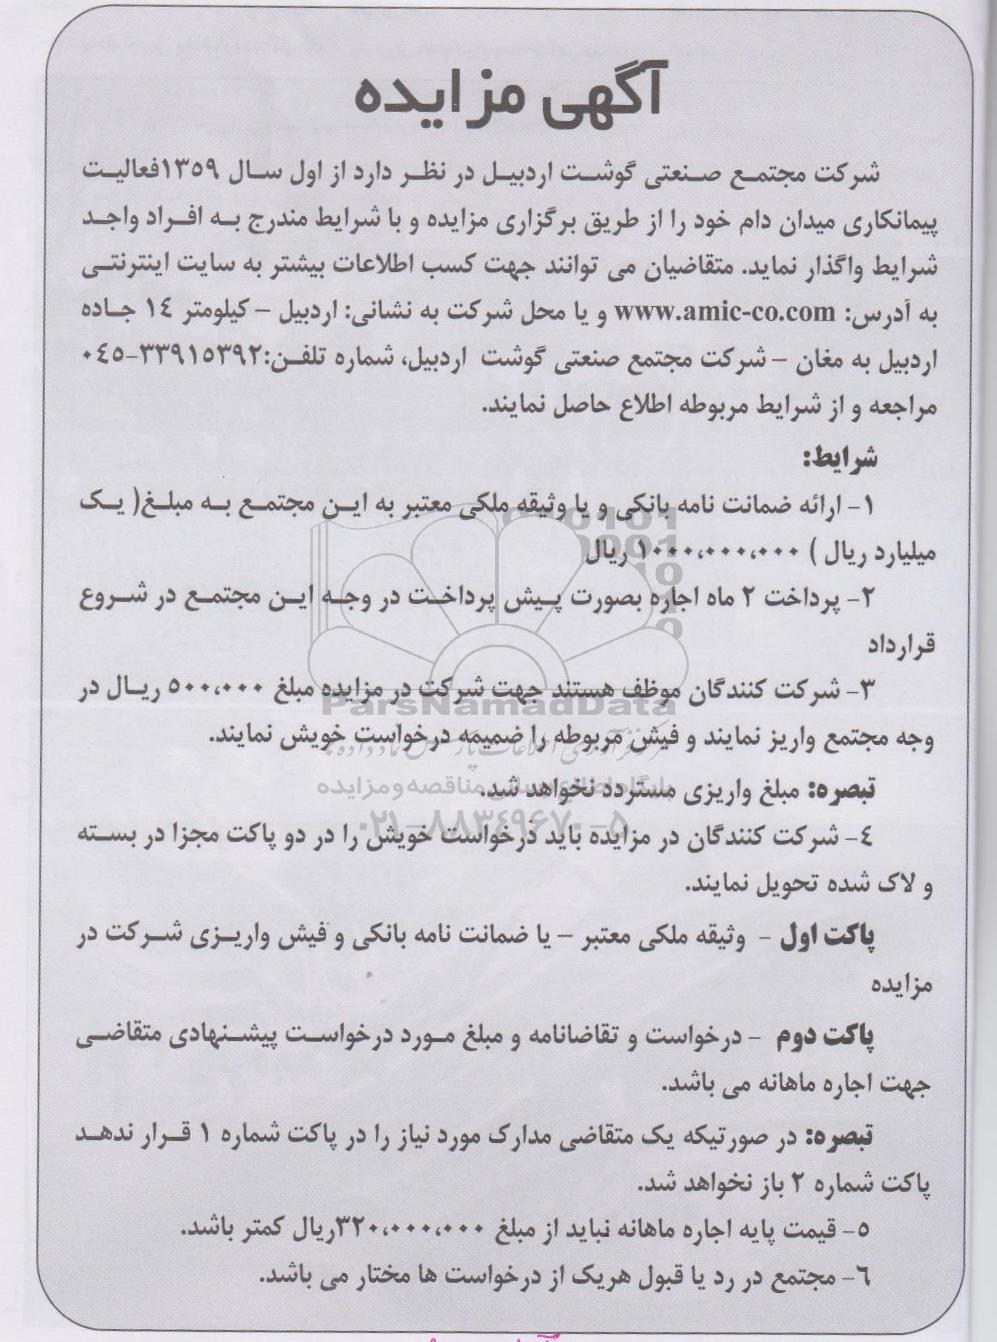 آگهی مزایده
شرکت مجتمع صنعتی گوشت اردبیل در نظر دارد از اول سال ۱۳۵۹فعالیت
پیمانکاری میدان دام خود را از طریق برگزاری مزایده و با شرایط مندرج به افراد واجد
شرایط واگذار نماید. متقاضیان می توانند جهت کسب اطلاعات بیشتر به سایت اینترنتی
به آدرس: www.amic-co.com و یا محل شرکت به نشانی: اردبیل – کیلومتر ۱۴ جاده
اردبیل به مغان – شرکت مجتمع صنعتی گوشت اردبیل، شماره تلفن:۳۳۹۱۵۳۹۲-۰۴۵
مراجعه و از شرایط مربوطه اطلاع حاصل نمایند.
شرایط:
۱- ارائه ضمانت نامه بانکی و یا وثیقه ملکی معتبر به این مجتمع به مبلغ( یک
میلیارد ریال ) ۱۰۰۰،۰۰۰،۰۰۰ ریال
۲- پرداخت ۲ ماه اجاره بصورت پیش پرداخت در وجه این مجتمع در شروع
قرارداد
۳- شرکت کنندگان موظف هستند جهت شرکت در مزایده مبلغ ۵۰۰،۰۰۰ ریال در
ParsNamadData
وجه مجتمع واریز نمایند و فیش مربوطه را ضمیمه درخواست خویش نمایند.
تبصره: مبلغ واریزی مستردد نخواهد شد.
پایگاه اطلاع رسانی مناقصه و مزایده
۰۲۱-۸۸۳۴۹۶۷۰-۵
۴- شرکت کنندگان در مزایده باید درخواست خویش را در دو پاکت مجزا در بسته
و لاک شده تحویل نمایند.
پاکت اول - وثیقه ملکی معتبر – یا ضمانت نامه بانکی و فیش واریزی شرکت در
مزایده
پاکت دوم - درخواست و تقاضانامه و مبلغ مورد درخواست پیشنهادی متقاضی
جهت اجاره ماهانه می باشد.
تبصره: در صورتیکه یک متقاضی مدارک مورد نیاز را در پاکت شماره ۱ قرار ندهد
پاکت شماره ۲ باز نخواهد شد.
۵- قیمت پایه اجاره ماهانه نباید از مبلغ ۳۲۰،۰۰۰،۰۰۰ریال کمتر باشد.
۶- مجتمع در رد یا قبول هریک از درخواست ها مختار می باشد.